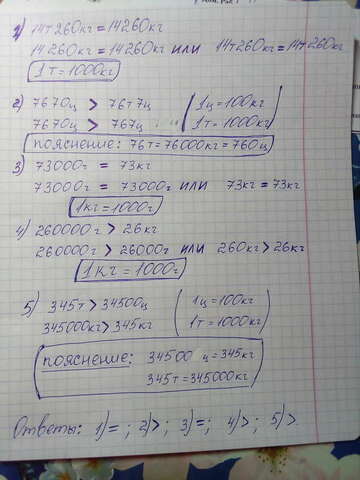 1) 14т260кг = 14260кг
14260кг = 14260кг или 14т260кг = 14т260кг
1т = 1000кг
2) 7670ц > 76т7ц (1ц = 100кг
7670ц > 767ц 1т = 1000кг)
пояснение: 76т = 76000кг = 760ц
3) 73000г = 73кг
73000г = 73000г или 73кг = 73кг
1кг = 1000г
4) 260000г > 26кг
260000г > 26000г или 260кг > 26кг
1кг = 1000г
5) 345т > 34500ц (1ц = 100кг
345000кг > 345кг 1т = 1000кг)
пояснение: 34500 ц = 345кг
345т = 345000кг
Ответы: 1) = ; 2) > ; 3) = ; 4) > ; 5) >.